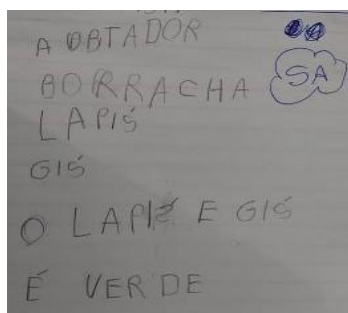 A OBTADOR
BORRACHA
SA
LAPIS
GIS
O LAPIS E GIS
É VERDE